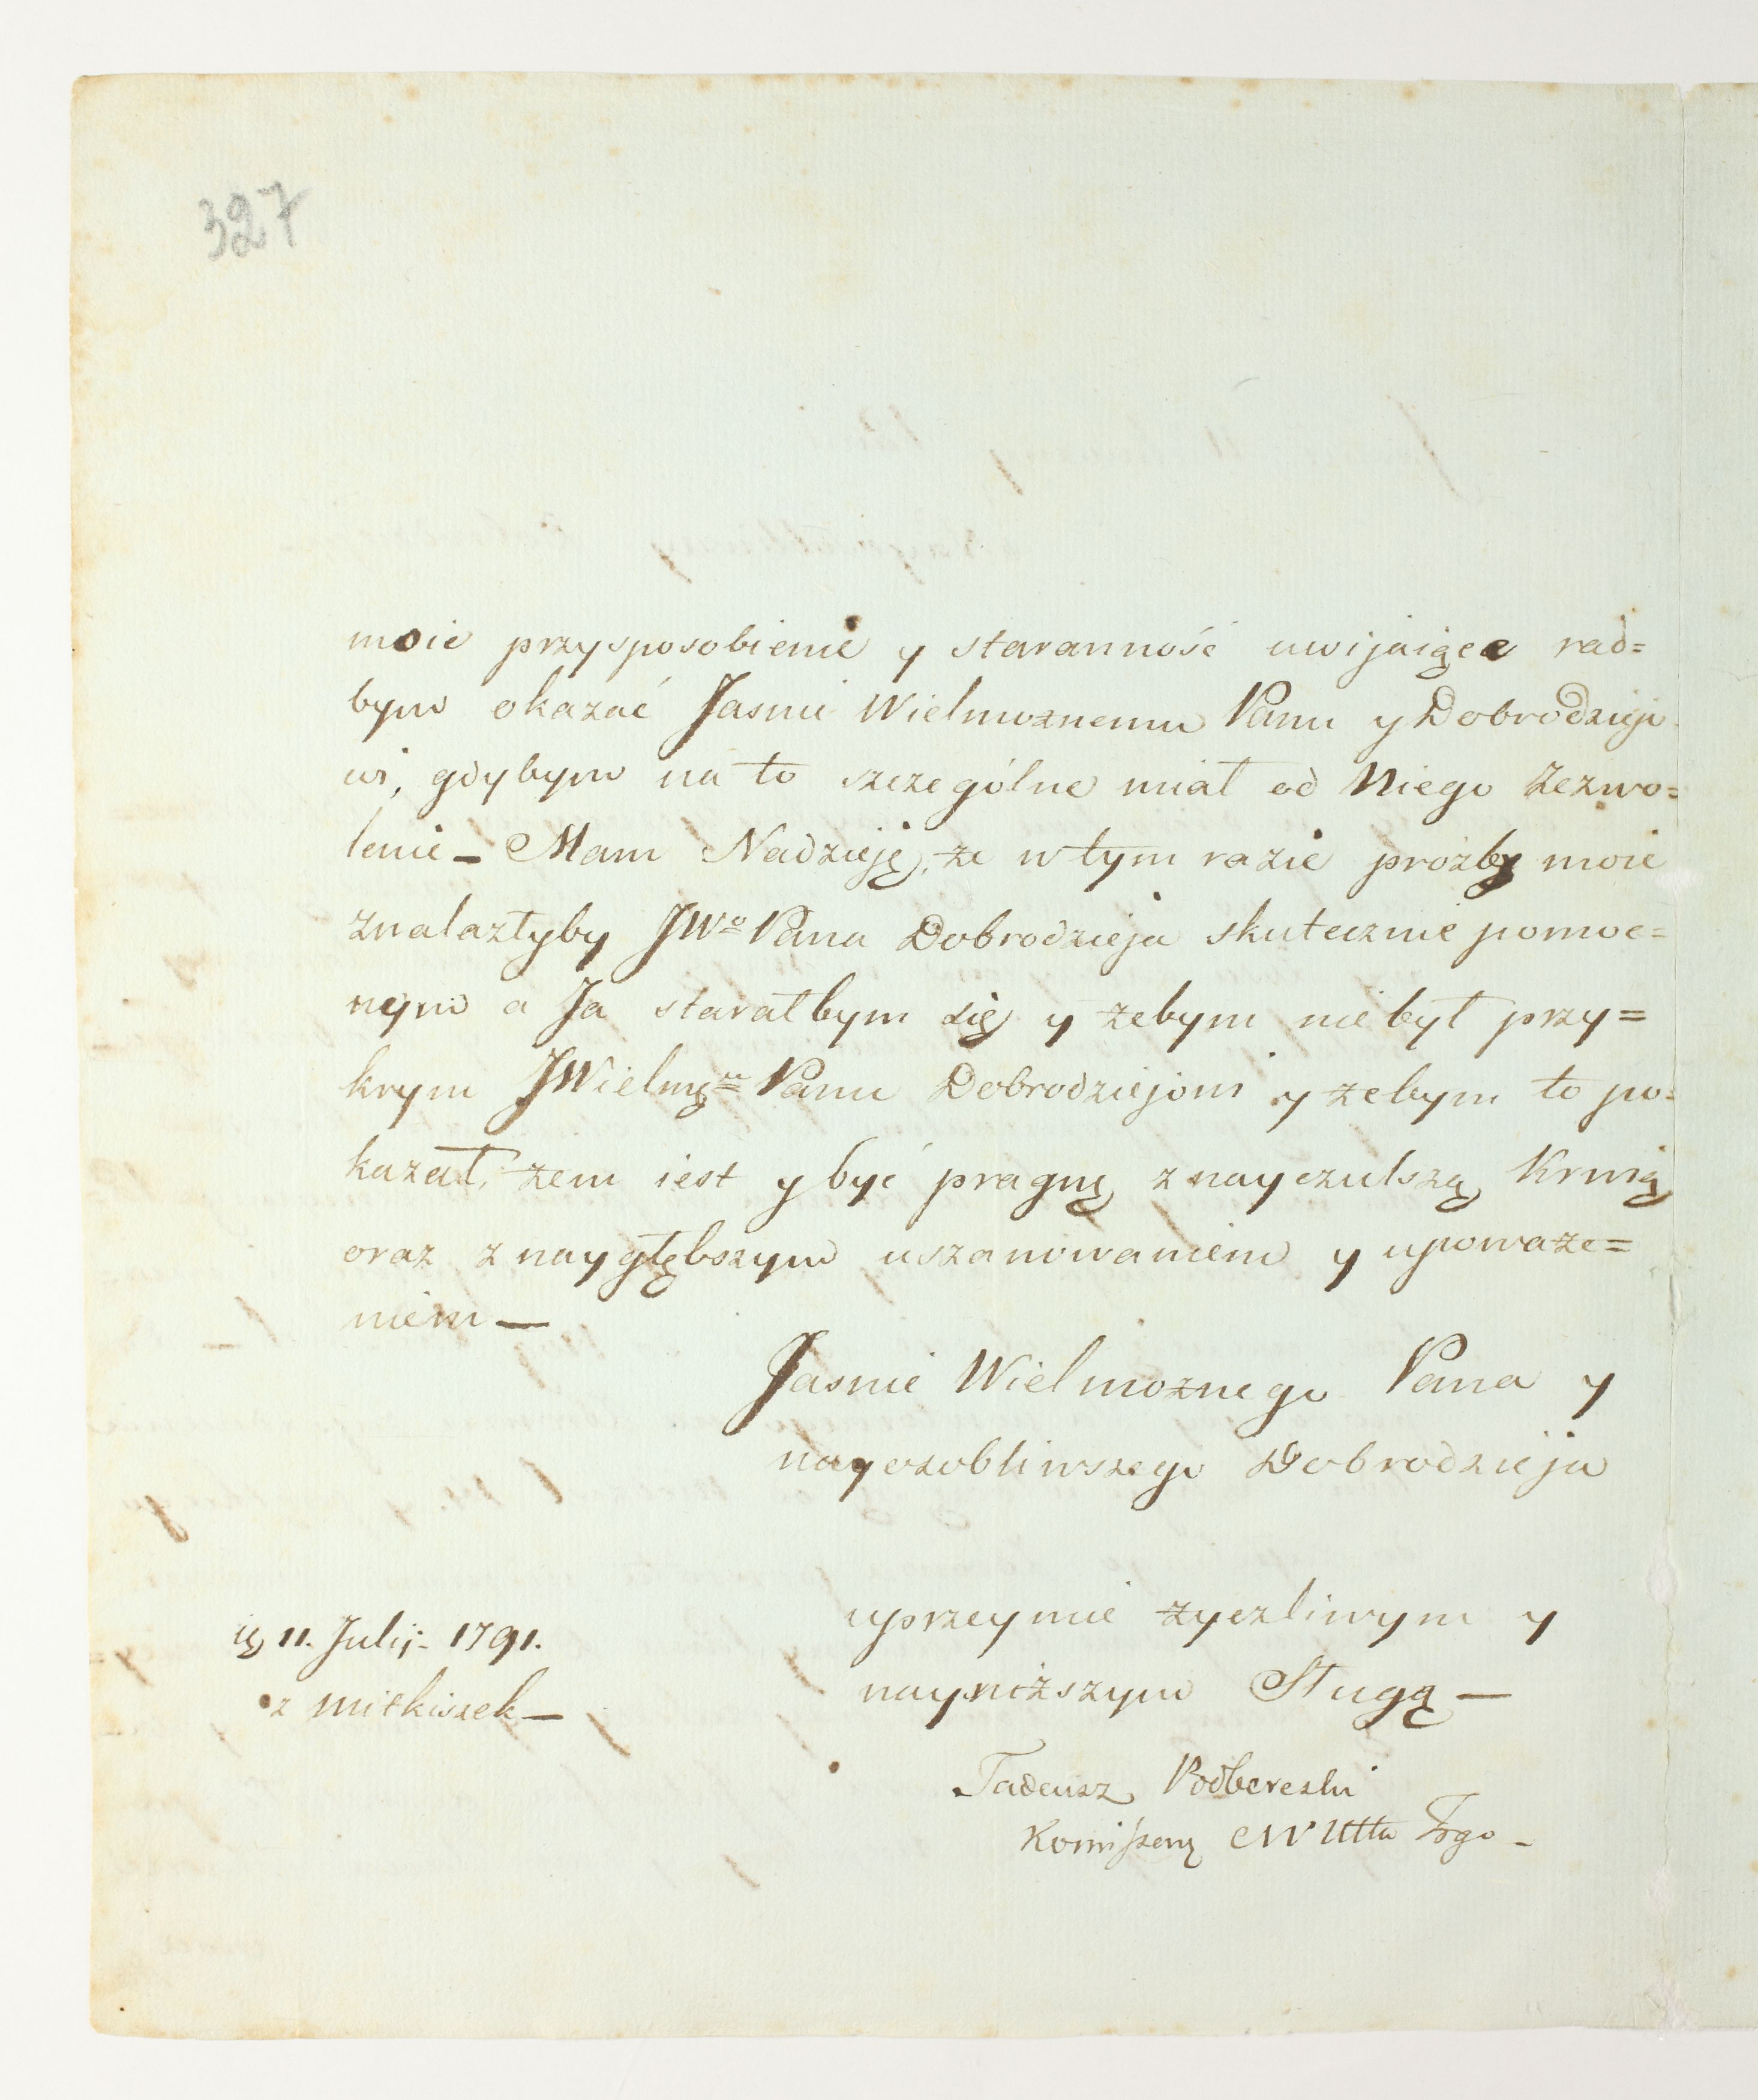 327
moie przysposobienie y staranność uwijaiące rad=
bym okazać Jasnie Wielmoznemu Panu y Dobrodzieio
wi, gdybym na to szczególne miał od Niego zezwo=
lenie – Mam Nadzieję, że w tym razie proźby moie
znalazłyby JWo Pana Dobrodzieja skutecznie pomoc=
nym a Ja starałbym się y żebym nie był przy=
krym JWielmo Panu Dobrodziejowi y żebym to po=
kazał, żem iest y być pragnę z nayczulszą Krwią
oraz z naygłębszym uszanowaniem y upoważe=
niem –
Jasnie Wielmożnego Pana y
nayosobliwszego Dobrodzieja
uprzeymie życzliwym y
nayniższym Sługą –
11. Julij. 1791.
z Mitkiszek –
Tadeusz Podbereski